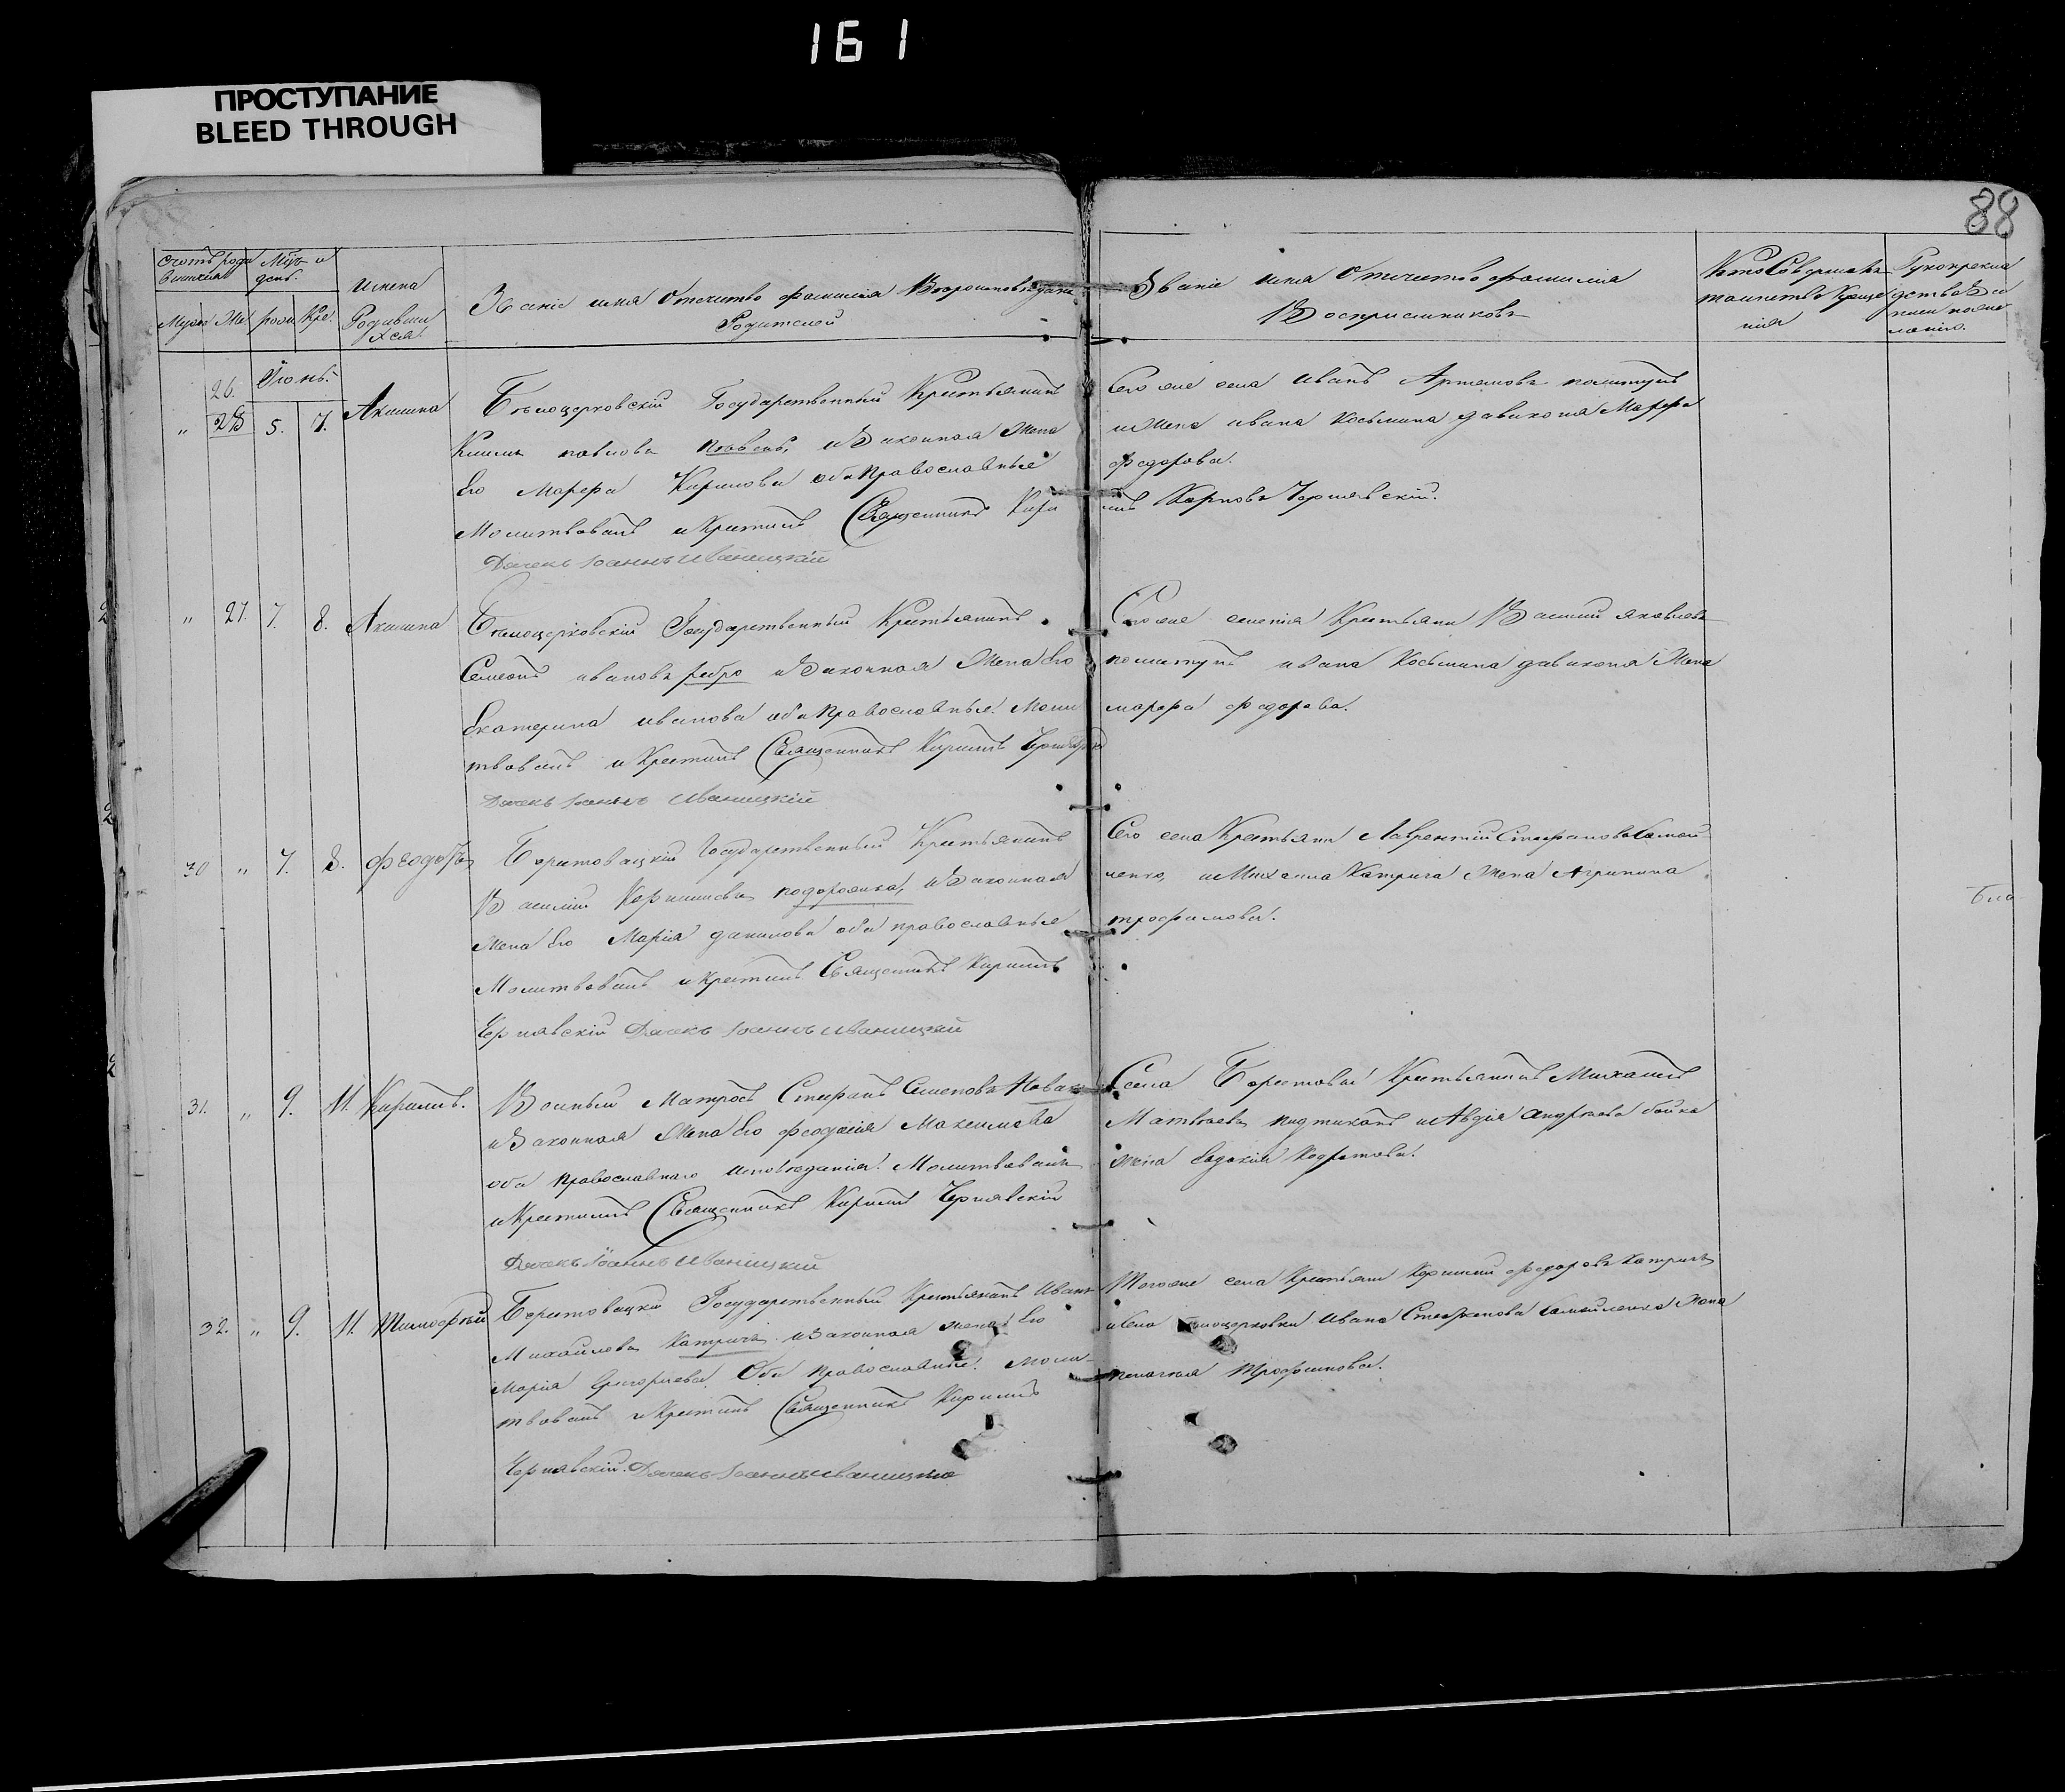 161
ПРОСТУПАНИЕ
BLEED THROUGH
88
Счотъ роди
вшихся
Мцъ и
день.
Имена
Родивши
хся
Муж. Же. рож. Кре.
Званіе имя Отечество фамилія Вѣроисповѣданіе
Родителей
Званіе имя Отечество фамилія
Воспріемниковъ
Кто Совершалъ
таинство Креще
нія
Рукоприкла
дство
Іюнь.
26.
" 5. 7. Акилина
Бѣлоцерковскій Государственный Крестьянинъ
Климъ Павловъ и Законная Жена
Его Марфа Кирилова оба Православные
Молитвовалъ и Крестилъ Священникъ Кири
Дьячекъ Іоаннъ Иваницкій
Сего же села Иванъ Артемовъ
и Жена Ивана Косьмина Марфа
Федорова.
лъ Карповъ Чернявскій.
" 27. 7. 8. Акилина
Бѣлоцерковскій Государственный Крестьянинъ
Семеонъ Ивановъ ребро и Законная Жена Его
Екатерина Иванова оба Православные. Моли
твовалъ и Крестилъ Священникъ Кирилъ
Дьячекъ Іоаннъ Иваницкій
селенія Крестьяни Василий Яковлевъ
Ивана Косьмина Жена
марфа федорова.
30 " 7. 8. Феодотъ
Берестовацкій Государственный Крестьянинъ
Василій Корниліевъ подорожка, и Законная
Жена Его Марія Данилова оба православные
Молитвовалъ и крестилъ Священникъ Кирилъ
Чернявскій Дьячекъ Іоаннъ Иваницкій
Сего села Крестьяни Лаврентій Стефановъ Самой
ленко, и Михаила Катрича Жена Агрипина
трофимова.
31. " 9. 11. Кирилъ.
Вольный Матросъ Стефанъ Семеновъ Новак
и Законная Жена Его Феодосія Максимова
оба православнаго исповѣданія. Молитвовалъ
и Крестилъ Священникъ Кирилъ Чернявскій
Дьячекъ Іоаннъ Иваницкій
Села Берестовой Крестьянинъ Михаилъ
Матвѣевъ и Авдія Андрѣева бойка
жена Евдокія Кодратова.
32. " 9. 11. Тимофѣй
Берестовацкій Государственный Крестьянинъ Иванъ
Михайловъ Катричь и Законная жена Его
Марія Григориева Оба православные. Моли
твовалъ и Крестилъ Священникъ Кирилъ
Чернявскій. Дьячекъ Іоаннъ Иваницкій
Тогоже села Крестьяни Корнилий федоровъ Катричь
Ивана Стефанова Самойленка Жена
пелагия Трофимова.